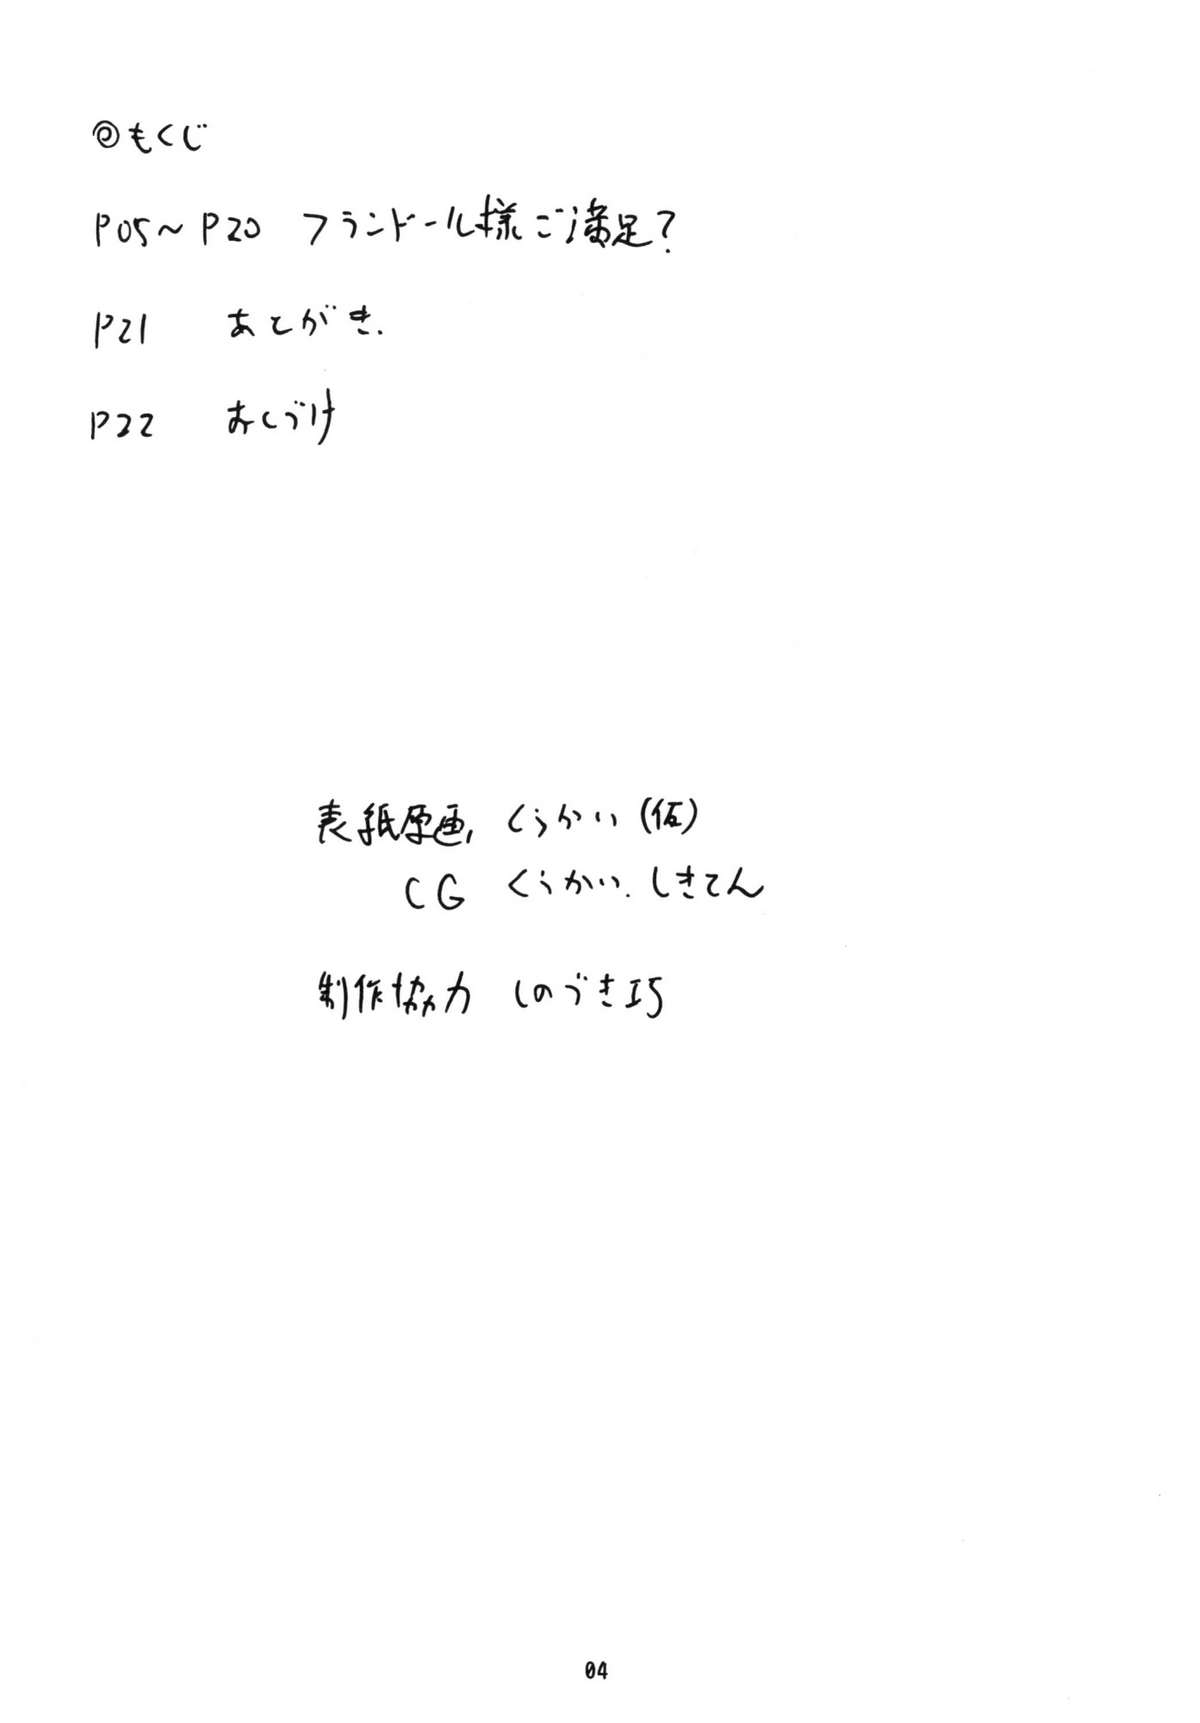 ◎もくじ
P05～P20 フランドール様ご満足？
P21 あとがき.
P22 おくづけ
表紙原画, くらかい(仮)
CG くらかい. しきてん
制作協力 しのづき巧
04